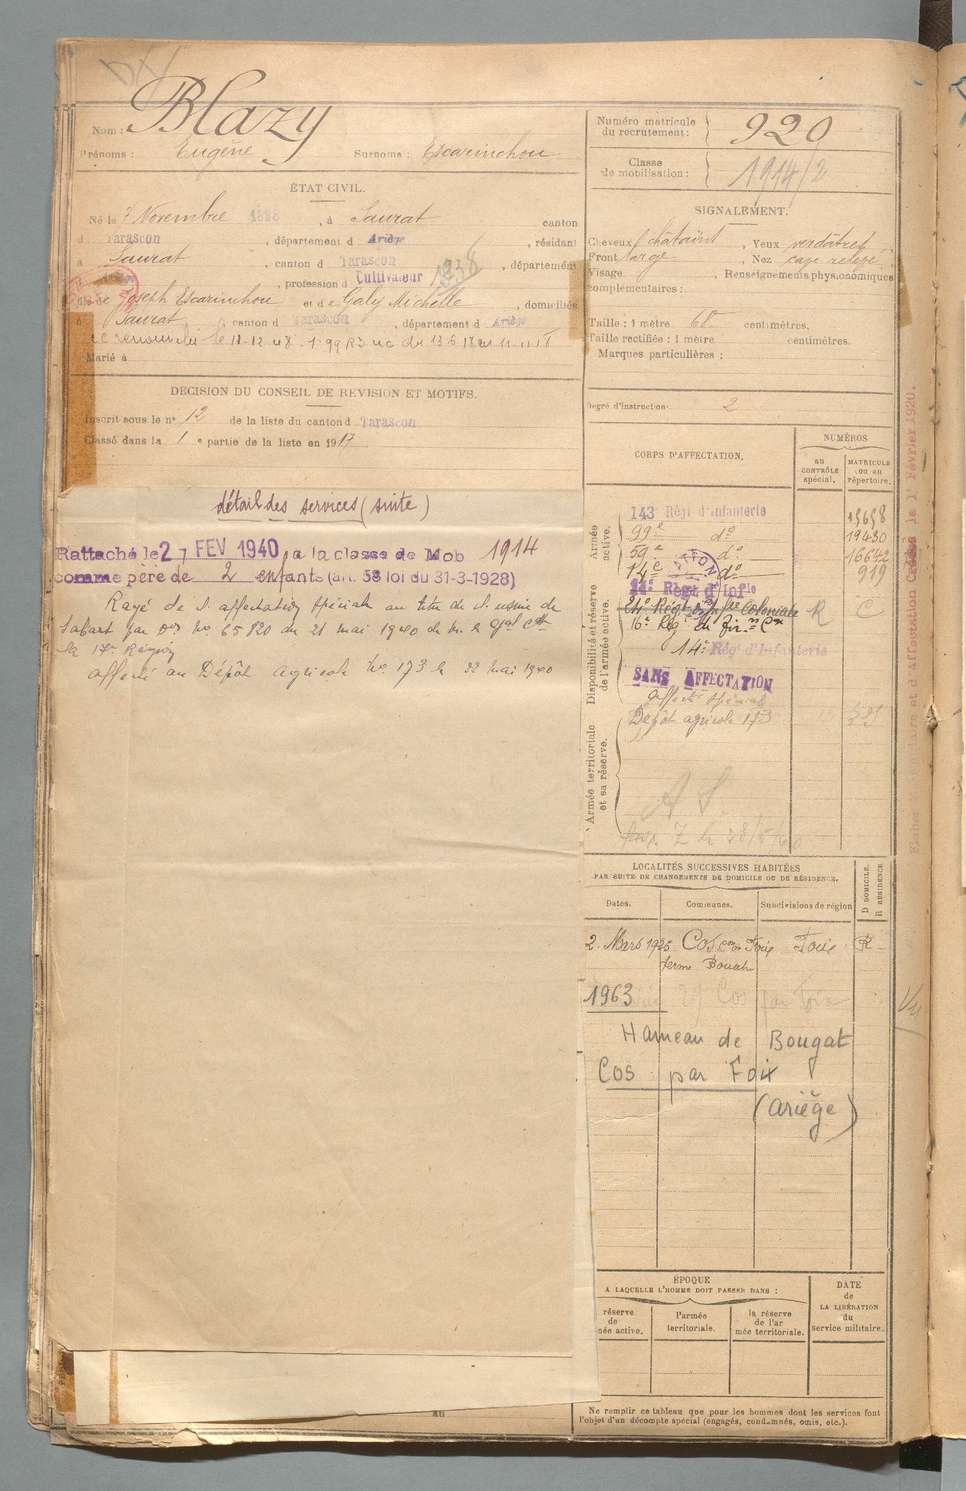 Nom : Blazy
Prénoms : Eugène Surnoms : Escarinchou
ÉTAT CIVIL.
Né le 7 Novembre 1898, à Saurat canton
d Tarascon, département d Ariège, résidant
à Saurat, canton d Tarascon, département
, profession d Cultivateur
fils de Joseph Escarinchou et de Galy Michelle, domiciliés
à Saurat, canton d Tarascon, département d Ariège
Marié à
DÉCISION DU CONSEIL DE RÉVISION ET MOTIFS.
Inscrit sous le n° 12 de la liste du canton d Tarascon
Classé dans la 1 e partie de la liste en 1917
détail des services (suite)
Rattaché le 27 FEV 1940 à la classe de Mob 1914
comme père de 2 enfants (art. 58 loi du 31-3-1928)
Rayé de l'affectation spéciale au titre de l'usine de
Sabart par No 65820 du 21 mai 1940 de
la 17e Région
affecté au Dépôt agricole No 173 le 22 mai 1940
Numéro matricule
du recrutement : 920
Classe
de mobilisation : 1914/2
SIGNALEMENT.
Cheveux châtains, Yeux verdâtres
Front large, Nez cave relevé
Visage, Renseignements physionomiques
complémentaires :
Taille : 1 mètre 68 centimètres.
Taille rectifiée : 1 mètre centimètres.
Marques particulières :
Degré d'instruction : 2
CORPS D'AFFECTATION.
NUMÉROS
AU
CONTRÔLE
spécial.
MATRICULE
OU AU
répertoire.
Armée
active.
143e Régt d'Infanterie
99e do 19430
59e do 16642
14e do 919
Disponibilité et réserve
de l'armée active.
14e Régt d'Infie
24e Régt Infie Coloniale R C
16e Rég.
14e Rég d'Infanterie
SANS AFFECTATION
Affecté spécial
Dépôt agricole 173
Armée territoriale
et sa réserve.
A S
LOCALITÉS SUCCESSIVES HABITÉES
PAR SUITE DE CHANGEMENTS DE DOMICILE OU DE RÉSIDENCE.
Dates. Communes. Subdivisions de région
D DOMICILE.
R RÉSIDENCE
2 Mars 1925 Cos con Foix Foix R
ferme Bouath
1963 Cos par Foix
Hameau de Bougat
Cos par Foix
(Ariège)
ÉPOQUE
A LAQUELLE L'HOMME DOIT PASSER DANS :
DATE
de
LA LIBÉRATION
du
service militaire.
réserve
de
mée active.
l'armée
territoriale.
la réserve
de l'ar
mée territoriale.
Ne remplir ce tableau que pour les hommes dont les services font
l'objet d'un décompte spécial (engagés, condamnés, omis, etc.).